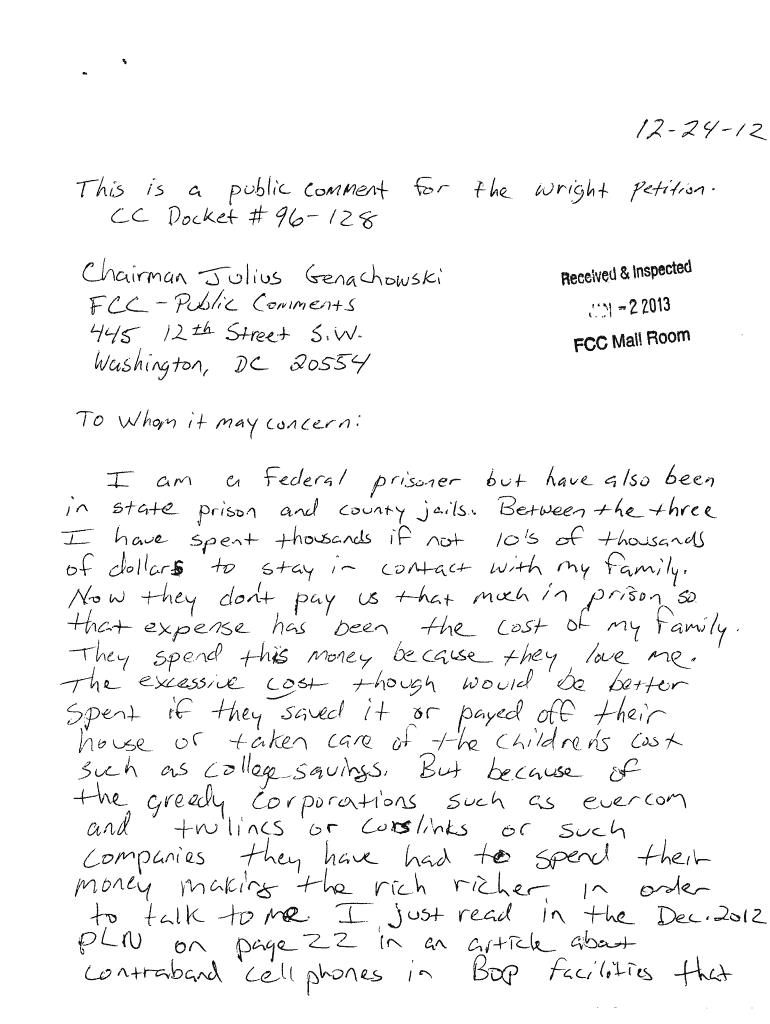 12-24-12
This is a public comment for the wright petition.
CC Docket # 96-128
Chairman Julius Genachowski
FCC - Public Comments
445 12th Street S.W.
Washington, DC 20554
Received & Inspected
JAN -2 2013
FCC Mail Room
To Whom it may concern:
I am a Federal prisoner but have also been
in state prison and county jails. Between the three
I have spent thousands if not 10's of thousands
of dollars to stay in contact with my family.
Now they don't pay us that much in prison so
that expense has been the cost of my family.
They spend this money because they love me.
The excessive cost though would be better
spent if they saved it or payed off their
house or taken care of the children's cost
such as college savings. But because of
the greedy corporations such as evercom
and trulincs or Corrlinks or such
companies they have had to spend their
money making the rich richer in order
to talk to me I just read in the Dec. 2012
PLN on page 22 in an article about
contraband cell phones in BOP facilities that